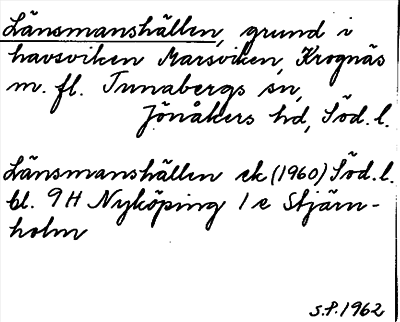 Länsmanshällen, grund i
havsviken Marsviken, Krognäs
m. fl. Tunabergs sn,
Jönåkers hd, Söd. l.
Länsmanshällen ek (1960) Söd. l.
bl. 9H Nyköping 1 e Stjärn-
holm
S.P. 1962